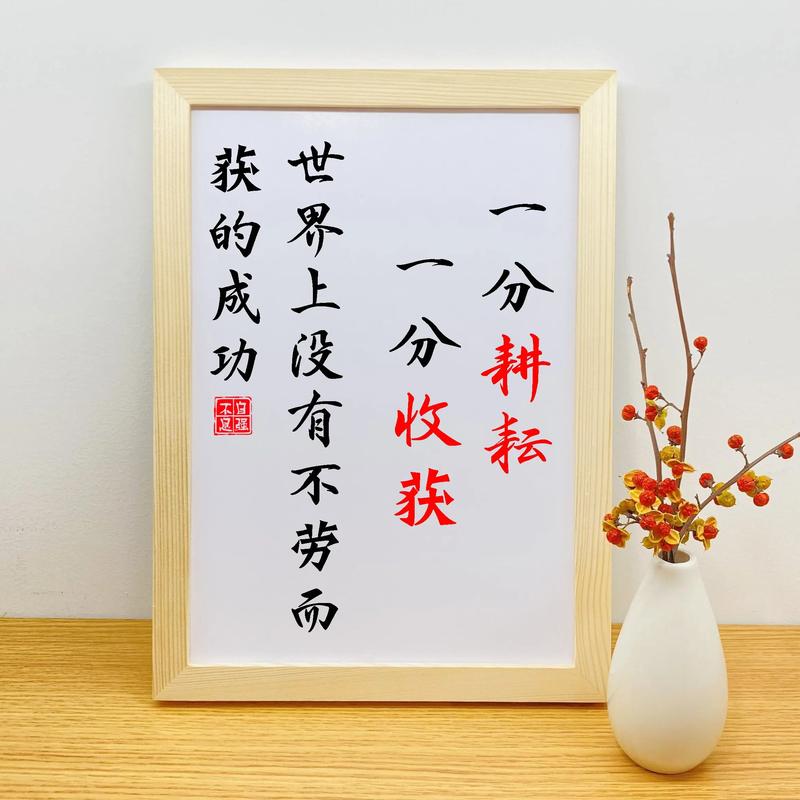 一分耕耘
一分收获
世界上没有不劳而
获的成功